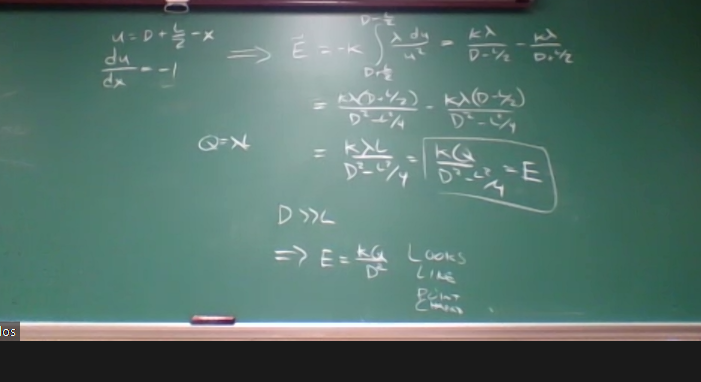 u = D + L/2 - x
du/dx = -1
⟹ E⃗ = -k ∫_{D+L/2}^{D-L/2} λ du/u² = kλ/(D-L/2) - kλ/(D+L/2)
= kλ(D+L/2)/(D²-L²/4) - kλ(D-L/2)/(D²-L²/4)
Q=λL
= kλL/(D²-L²/4) = kQ/(D²-L²/4) = E
D >> L
⟹ E = kQ/D² LOOKS
LIKE
POINT
CHARGE
los